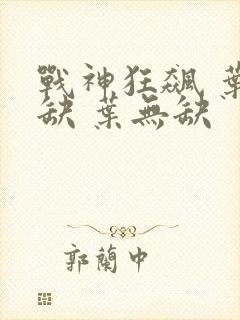 戰神狂飆 葉
缺 葉無缺
郭蘭中